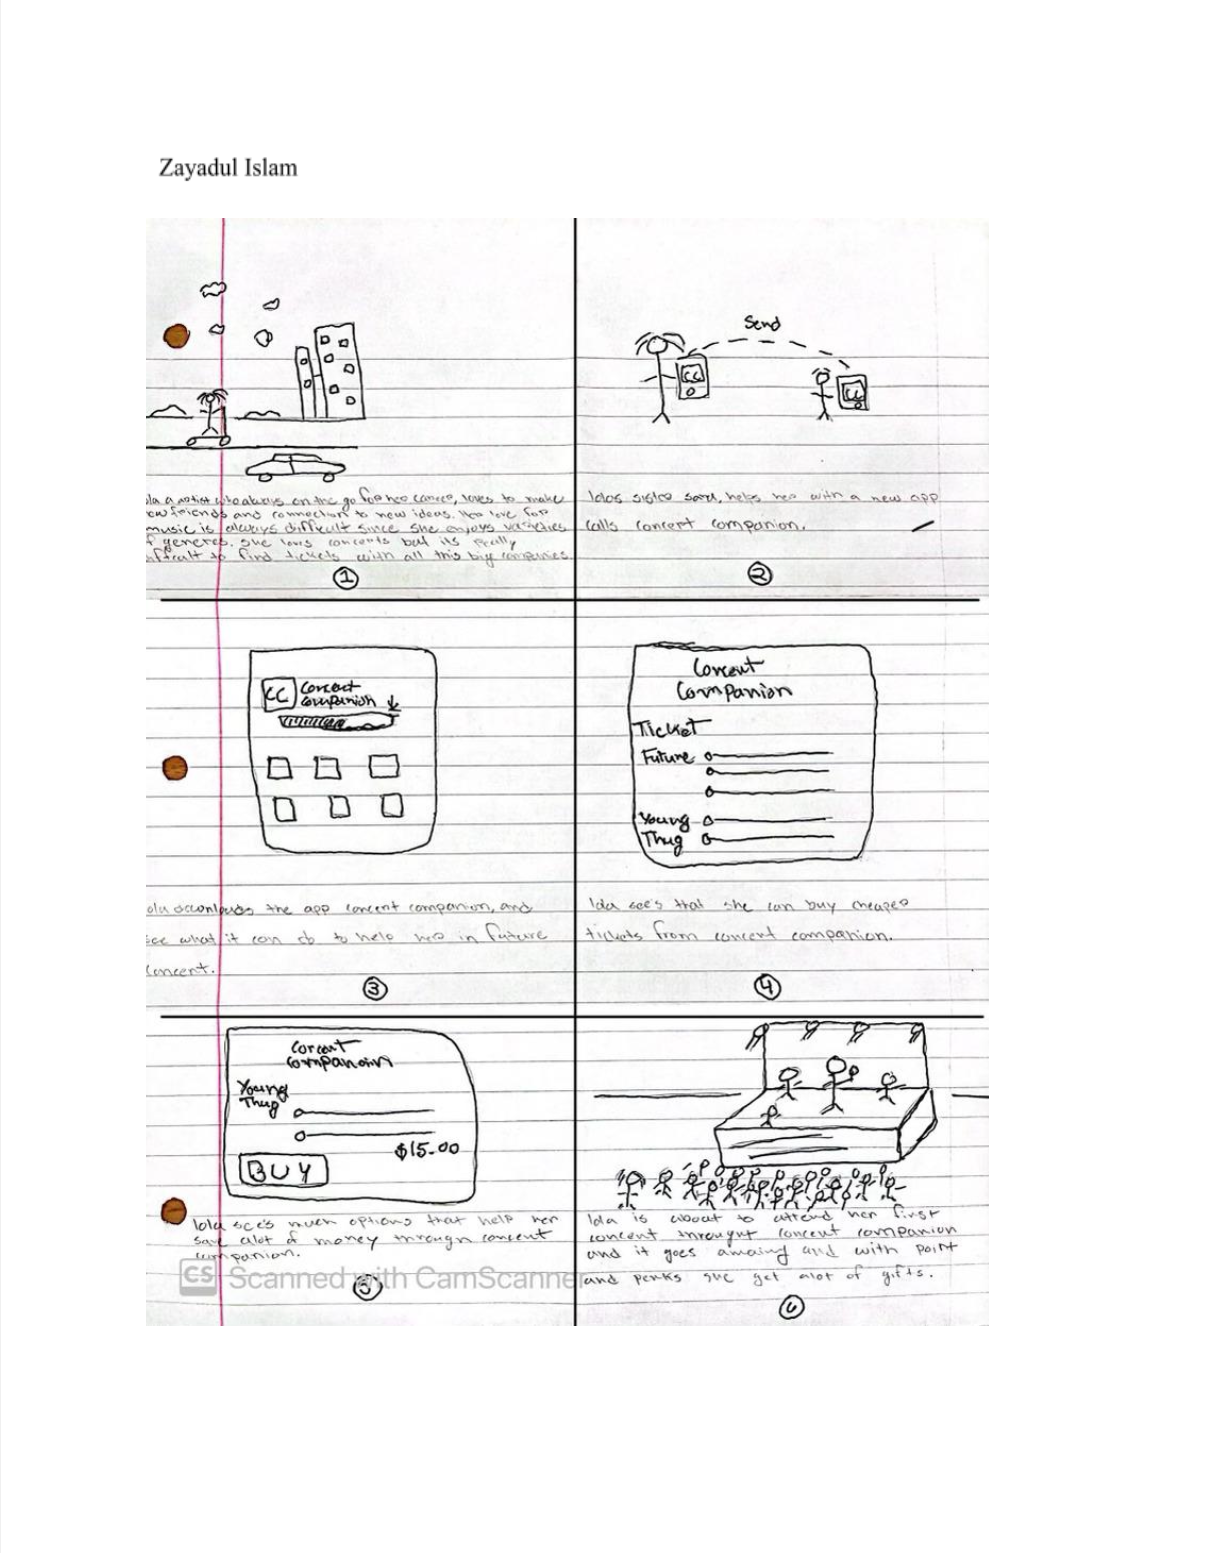 Zayadul Islam
Send
CC
CC
la a artist who always on the go for her career, loves to make
ew friends and connection to new ideas. Her love for
music is always difficult since she enjoys varieties
f generes. she loves concerts but its really
ifficult to find tickets with all this big companies
1
lolas sister sara, helps her with a new app
calls concert companion.
2
CC Concert
Companion
ola downloads the app concert companion, and
see what it can do to help her in future
concert.
3
Concert
Companion
Ticket
Future
Young
Thug
lola see's that she can buy cheaper
tickets from concert companion.
4
Concert
Companion
Young
Thug
$15.00
BUY
lola see's much options that help her
save alot of money through concert
companion.
5
CS Scanned with CamScanner
lola is about to attend her first
concert throught concert companion
and it goes amazing and with point
and perks she get alot of gifts.
6